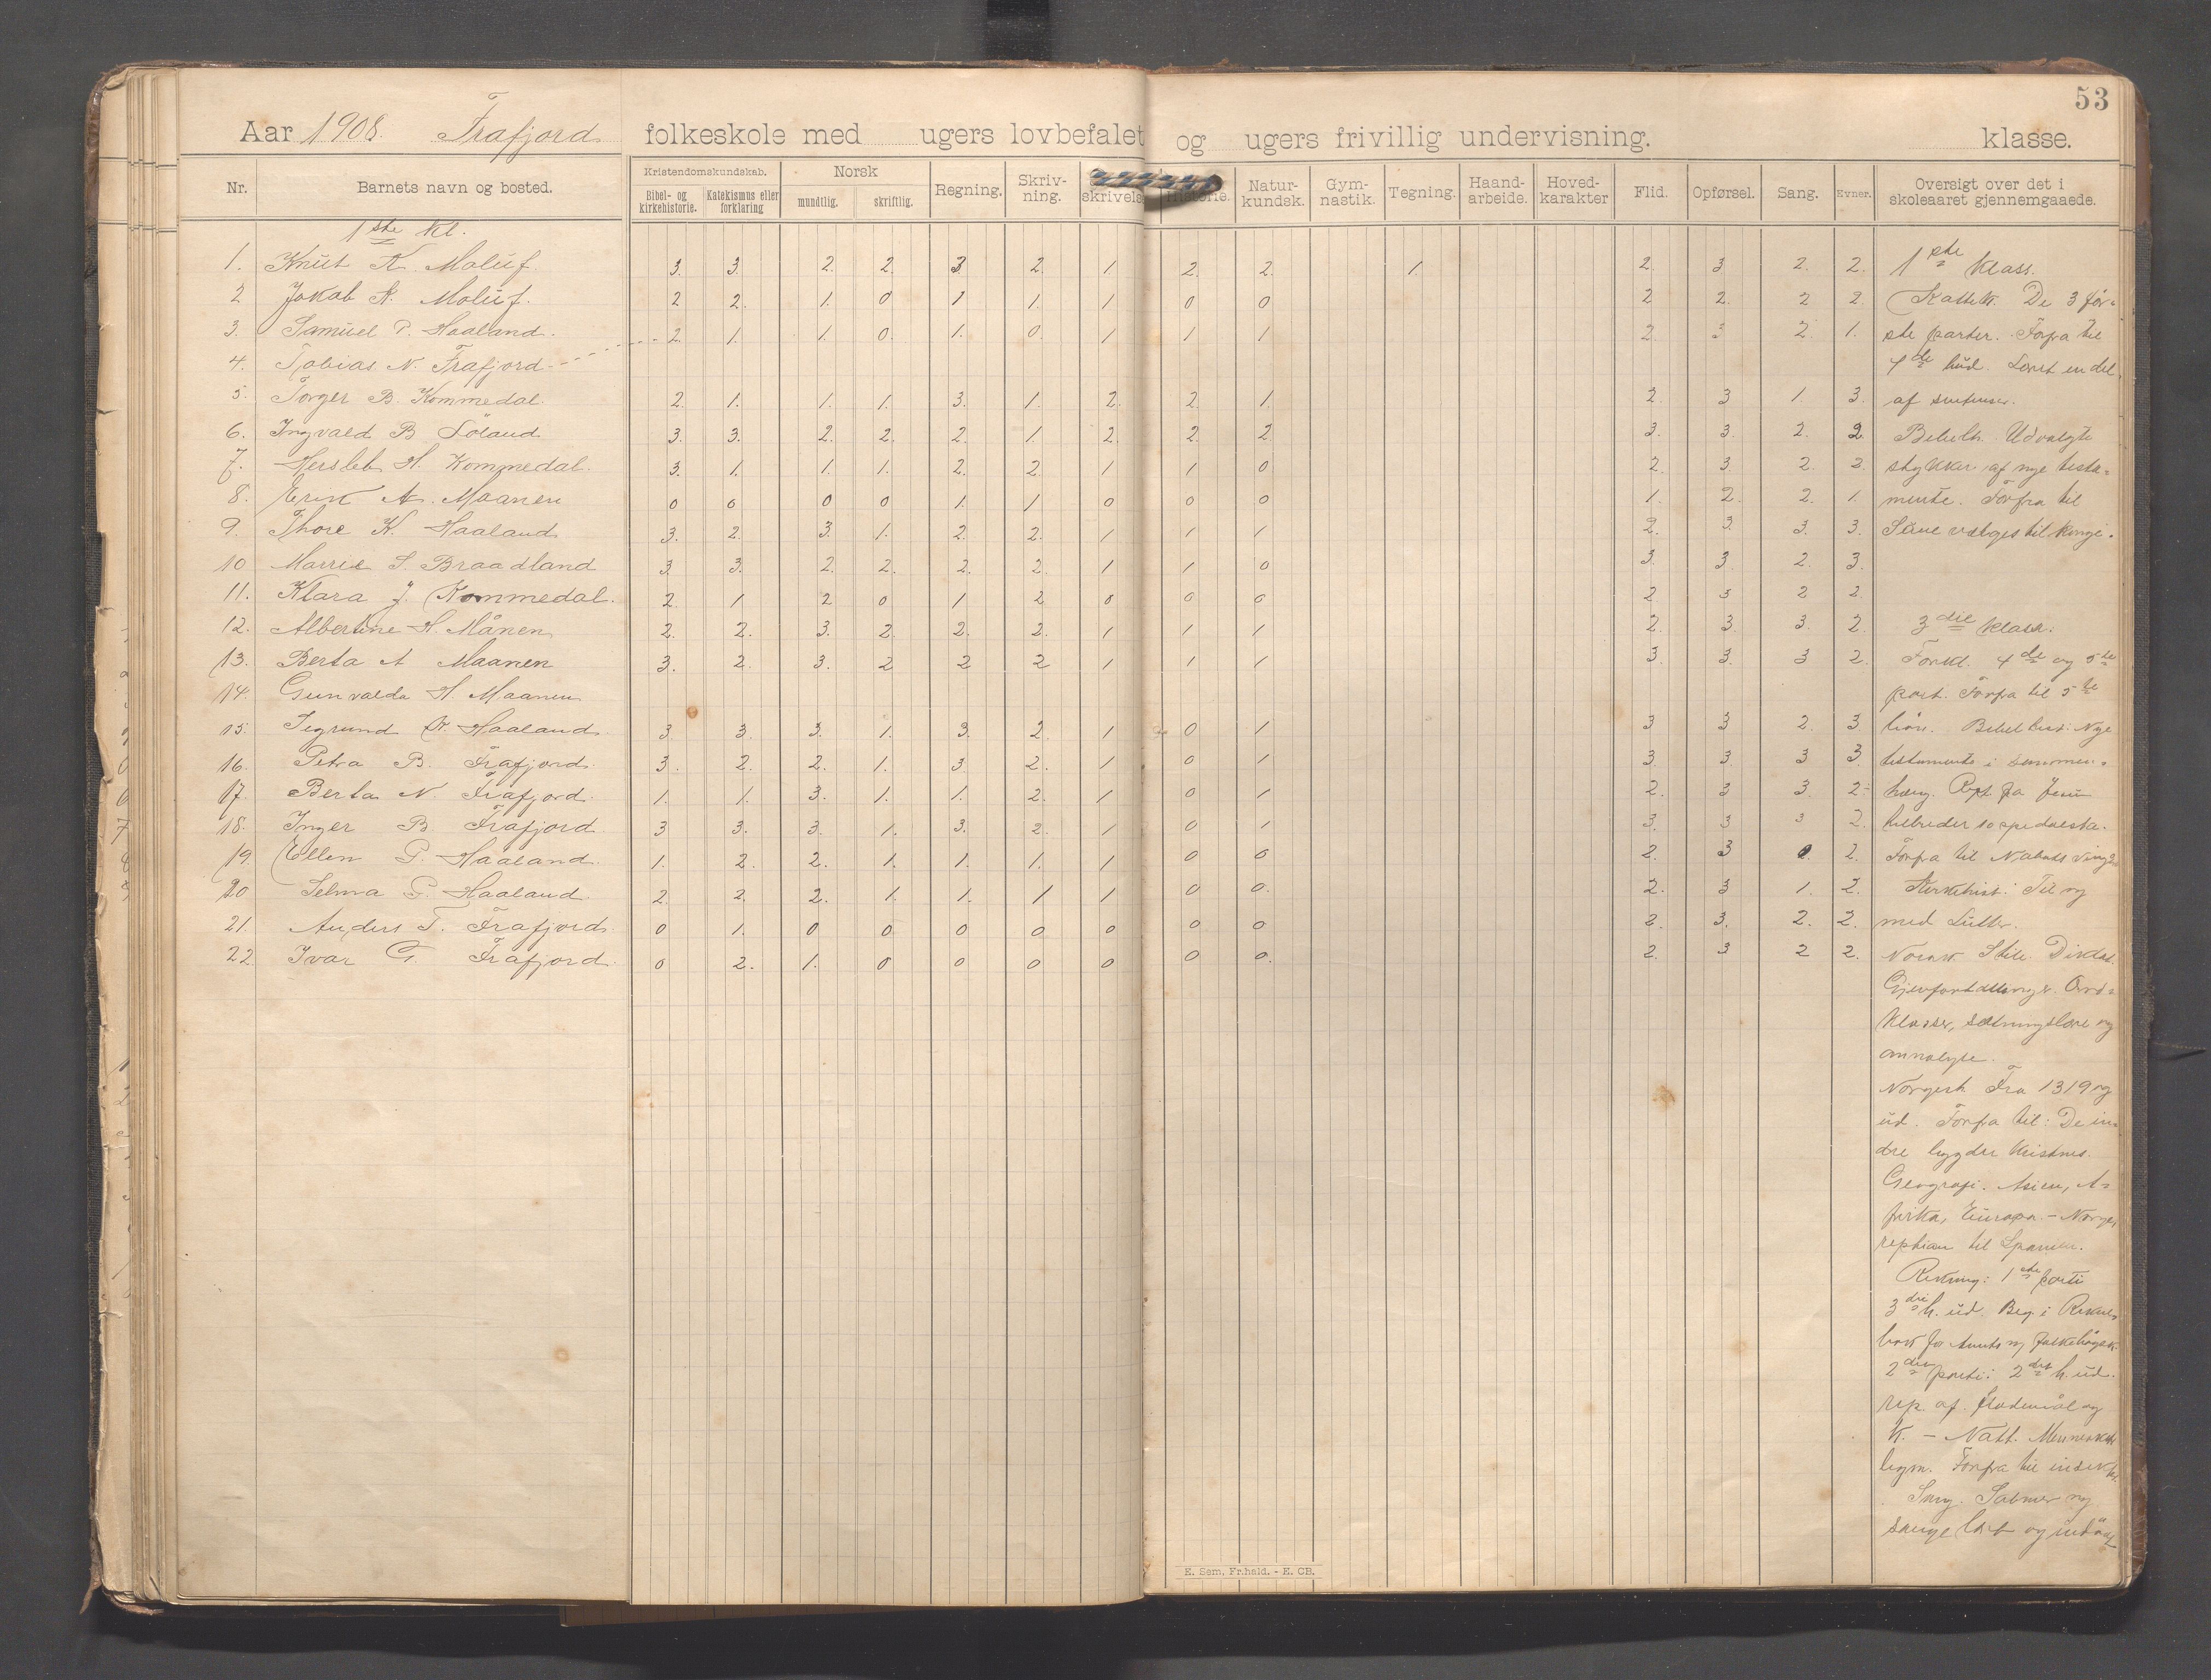 53
Aar 1908. Frafjord folkeskole med ugers lovbefalet og ugers frivillig undervisning. klasse.
Nr. Barnets navn og bosted. Kristendomskundskab. Bibel- og kirkehistorie. Katekismus eller forklaring Norsk mundtlig. skriftlig. Regning. Skriv-ning. skrivels Historie. Natur-kundsk. Gym-nastik. Tegning. Haand-arbeide. Hoved-karakter Flid. Opførsel. Sang. Evner. Oversigt over det i skoleaaret gjennemgaaede.
1ste Kl.
1. Knut K. Maluf. 3. 3. 2. 2. 3. 2. 1 2. 2. 1. 2. 3 2. 2.
2 Jakob A. Maluf. 2 2. 1. 0 1 1. 1 0 0 2 2. 2 2.
3. Samuel P. Haaland. 2. 1. 1. 0. 1. 0. 1 1 1 2. 3 2. 1.
4. Tobias N. Frafjord
5. Torger B. Kommedal. 2. 1. 1. 1. 3. 1. 2. 2. 1. 2. 3 1. 3.
6. Ingvald B. Söland 3. 3. 2. 2. 2. 1. 2. 2. 2 3. 3. 2. 2.
7. Hersleb H. Kommedal. 3. 1. 1. 1. 2. 2. 1 1 0 2. 3. 2. 2.
8. Erik A. Maanen 0 0 0 0 1. 1 0 0 0 1. 2. 2. 1.
9. Thore K. Haaland 3. 2. 3. 1. 2. 2. 1 1 1 2. 3. 3. 3.
10 Marrie S. Braadland 3. 3. 2. 2. 2. 2. 1 1 0 3. 3. 2. 3.
11. Klara J. Kommedal. 2. 1 2 0 1 2 0 0 0 2. 3 2 2.
12. Albertine H. Månen 2. 2. 3. 2. 2. 2. 1 1 1 2. 3. 3. 2.
13. Berta A Maanen 3. 2. 3. 2 2 2 1 1 1 3. 3. 3 2.
14. Gunvalda H. Maanen
15. Segrund K. Haaland. 3 3 3. 1. 3. 2. 1 0 1 3 3 2. 3
16. Petra B. Frafjord. 3. 2. 2. 1. 3 2. 1 0 1 3. 3 3 3.
17. Berta N. Frafjord. 1. 1. 3. 1. 1. 2. 1 0 1 2. 3 3. 2.
18. Inger B. Frafjord. 3 3. 3. 1. 3. 2. 1 0 1 3. 3 3 2.
19. Ellen P. Haaland. 1. 2. 2. 1. 1. 1. 1 0 0 2. 3 0. 2.
20 Selma P. Haaland. 2. 2. 2. 1. 1. 1 1 0 0. 2. 3 1. 2.
21. Anders T. Frafjord. 0 1. 0 0 0 0 0 0 0 2. 3. 2. 2.
22. Ivar G. Frafjord. 0 2. 1. 0 0 0 0 0 0. 2. 3 2 2.
1ste Klass.
Kattek. De 3 för-
ste parter. Forfra til
4de bud. Lært en del
af
Bibelh. Udvalgte
stykker af nye testa-
mente. Forfra til
Saul vælges til konge.
3die klass.
Forkl. 4de og 5te
part. Forfra til 5te
bön. Bibelhist. Nye
testamente i sammen-
hæng. Rept. fra Jesus
helbreder 10 spedalske.
Forfra til Nabots ving
Kirkehist: Til og
med Luther.
Norsk Stile. Diktat.
Gjenfortællinger. Ord-
klasser, sætningslære og
annalyse.
Norgesh Fra 1319 og
ud. Forfra til: De in-
dre bygder kristnes.
Geografi. Asien, A-
frika, Europa. - Norge,
reption til Spanien.
Rekning: 1ste parti
3die h. ud. Beg. i Rekne-
bok for Amts og folkehögsk.
2det parti: 2det h. ud.
rep. af flademål og
K. - Natt. Menneskets
legm. Forfra til insekter.
Sang. Salmer og
sange lært og indövet
E. Sem, Fr.hald. - E. CB.